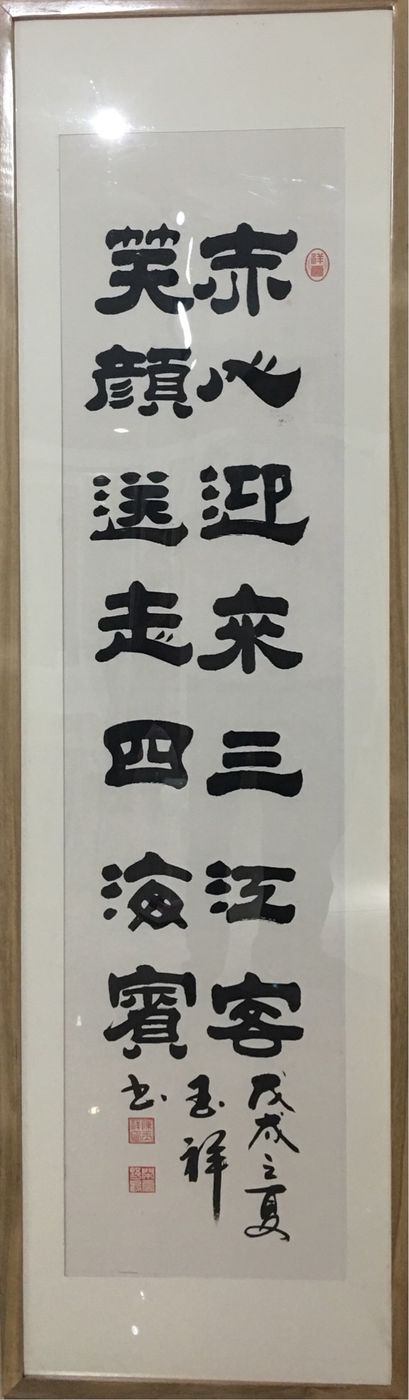 赤心迎来三江客
笑顔送走四海賓
戊戌之夏
玉祥
书